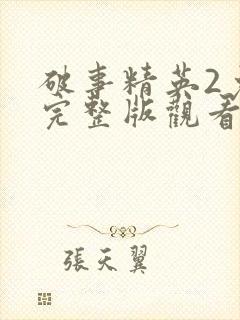 破事精英2
完整版觀看
張天翼